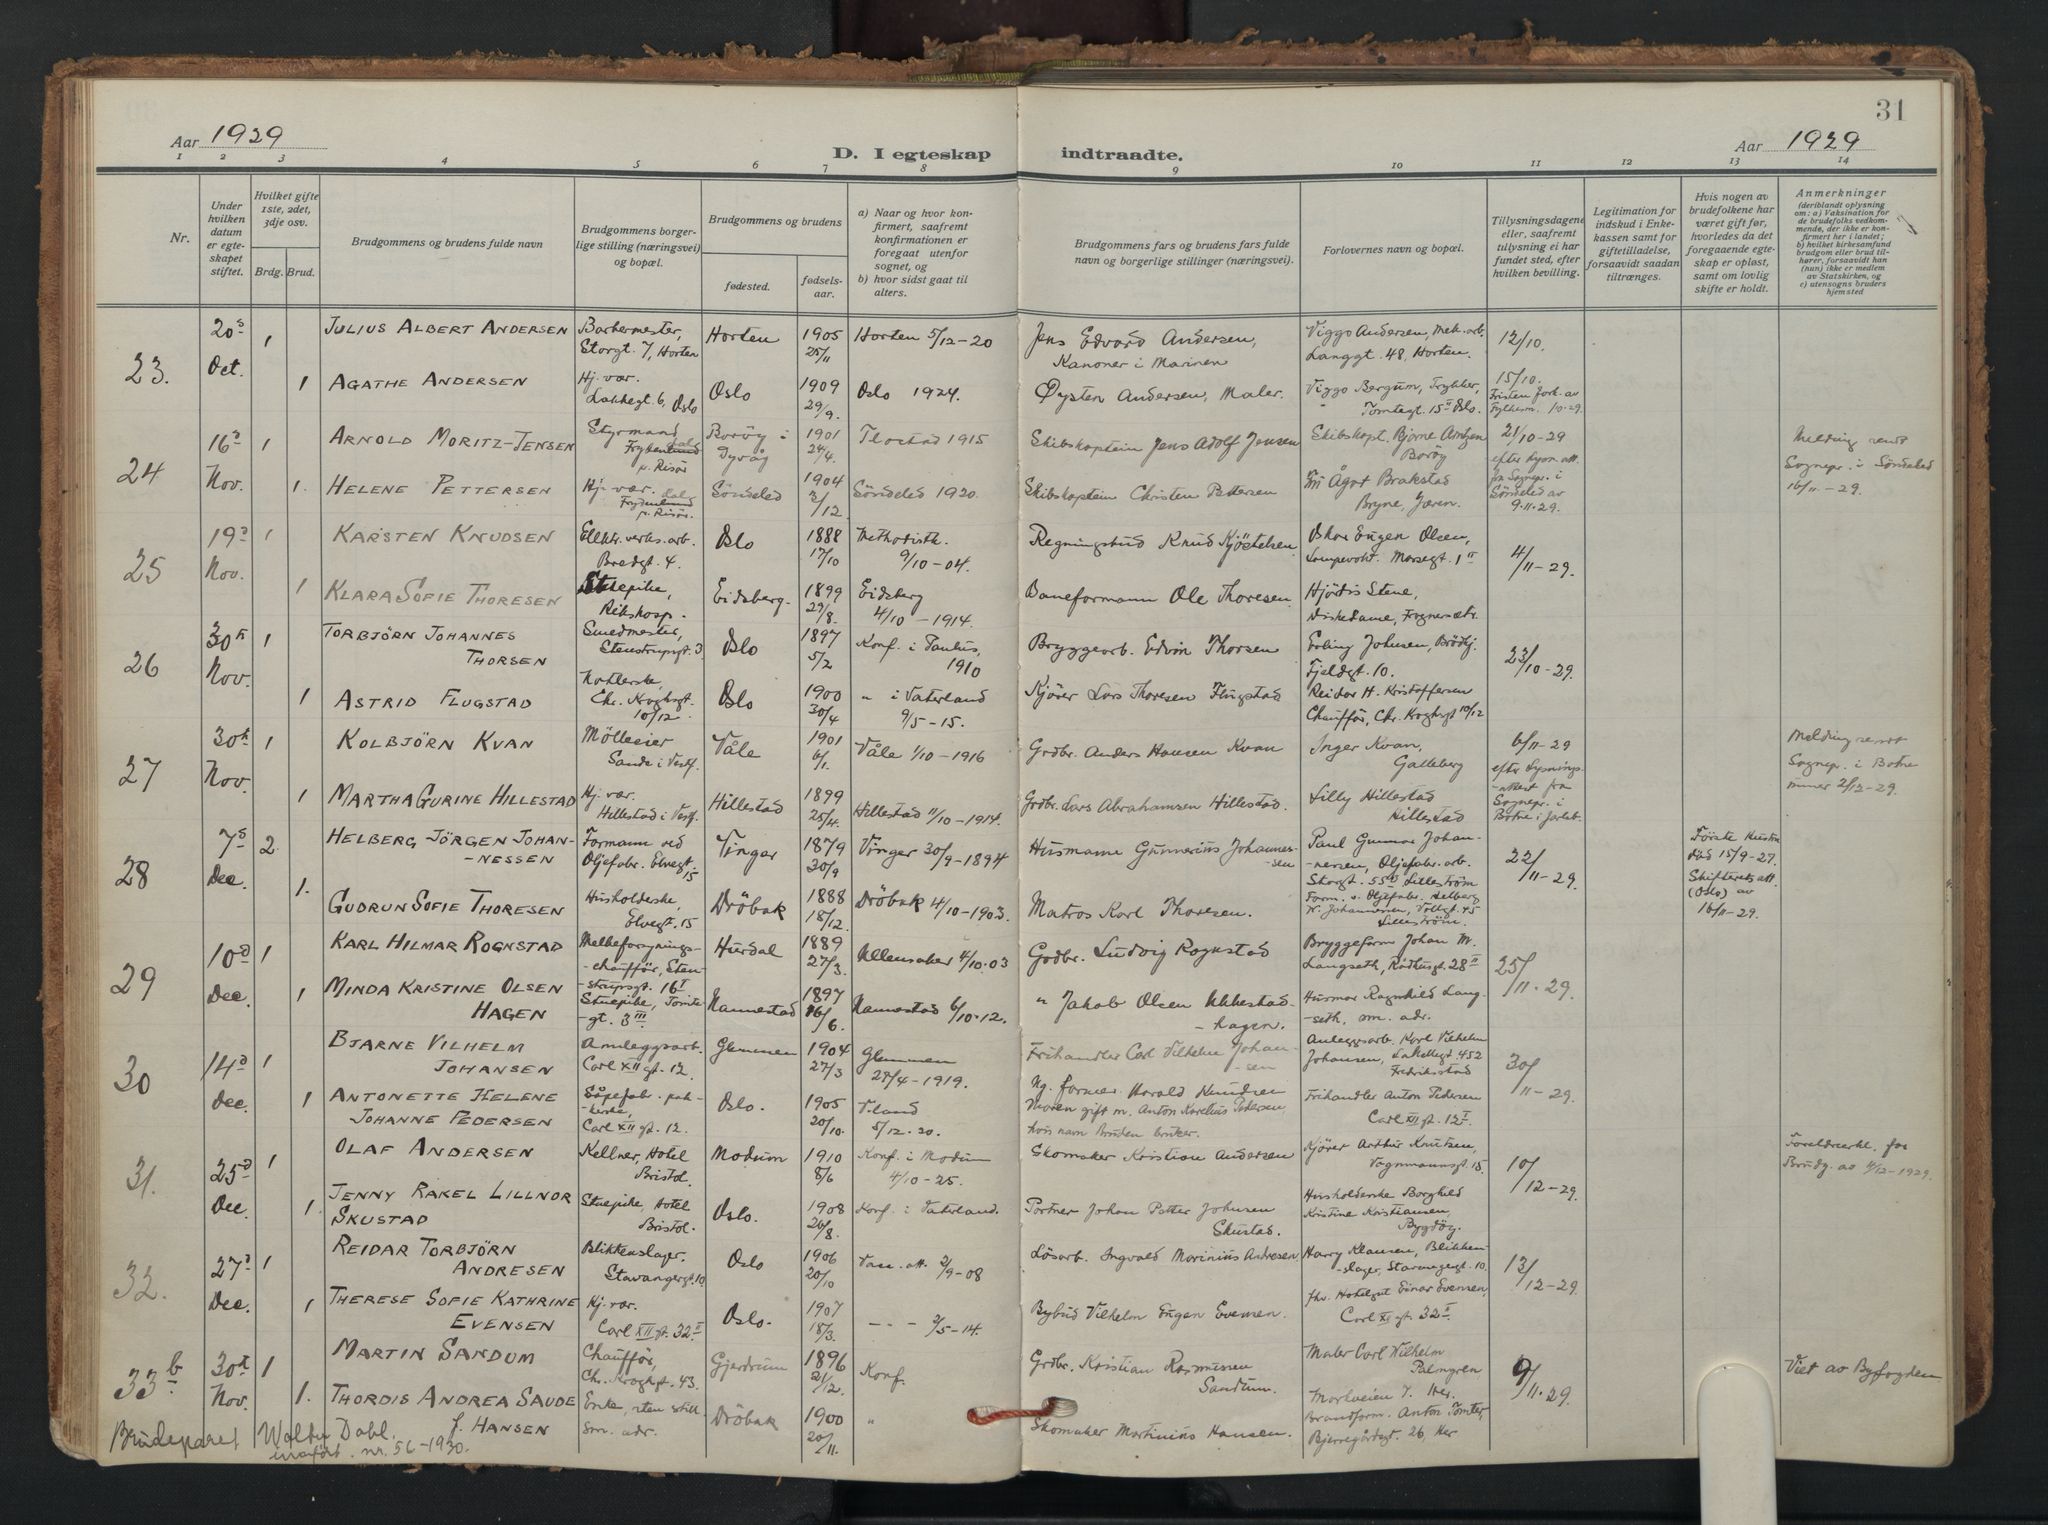 31
Aar 1929
D. I egteskap indtraadte.
Aar 1929
1 2 3 4 5 6 7 8 9 10 11 12 13 14
Nr.
Under hvilken datum er egteskapet stiftet.
Hvilket gifte 1ste, 2det, 3dje osv.
Brdg. Brud.
Brudgommens og brudens fulde navn
Brudgommens borgerlige stilling (næringsvei) og bopæl.
Brudgommens og brudens
fødested.
fødselsaar.
a) Naar og hvor konfirmert, saafremt konfirmationen er foregaat utenfor sognet, og
b) hvor sidst gaat til alters.
Brudgommens fars og brudens fars fulde navn og borgerlige stillinger (næringsvei).
Forlovernes navn og bopæl.
Tillysningsdagene eller, saafremt tillysning ei har fundet sted, efter hvilken bevilling.
Legitimation for indskud i Enkekassen samt for giftetilladelse, forsaavidt saadan tiltrænges.
Hvis nogen av brudefolkene har været gift før, hvorledes da det foregaaende egteskap er opløst, samt om lovlig skifte er holdt.
Anmerkninger
(deriblandt oplysning om: a) Vaksination for de brudefolks vedkommende, der ikke er konfirmert her i landet; b) hvilket kirkesamfund brudgom eller brud tilhører, forsaavidt han (hun) ikke er medlem av Statskirken, og c) utensogns bruders hjemsted
23. 20 Oct. 1 JULIUS ALBERT ANDERSEN Barbermester, Storgt. 7, Horten Horten 1905 25/11 Horten 5/12-20 Jens Edvard Andersen, Kanoner i Marinen Viggo Andersen, Mek. arb. Langgt. 48, Horten. 12/10.
1 AGATHE ANDERSEN Hj. vær. Lakkegt. 6, Oslo Oslo 1909 29/9. Oslo 1924. Øysten Andersen, Maler. Viggo Bergum, Trykker, Tomtegt. 15 II Oslo. 15/10. Fristen fork. av 10-29.
24 16 Nov. 1 ARNOLD MORITZ-JENSEN Styrmand p. Risør Borøy i Dyvåg 1901 24/4. 1915 Skibskaptein Jens Adolf Jensen Skibskapt. Bjarne Arntzen Borøy 21/10-29 Melding sendt Sognepr. i Søndeled 16/11-29.
1. HELENE PETTERSEN Hj. vær. p. Risør. Søndeled 1904 2/12. Søndeled 1920. Skibskaptein Christen Pettersen Ågot Brakstad Bryne, Jæren. fra Sognepr. i Søndeled av 9.11.29.
25 19 Nov. 1 KARSTEN KNUDSEN Elektr. verks. arb. Bredgt. 4. Oslo 1888 17/10 Methodistk. 9/10-04. Regningsbud Knud Kjøstelsen Oskar Eugen Olsen, Lampevokt. Marsegt. 1 II 4/11-29.
1 KLARA SOFIE THORESEN Stuepike, Rikshosp. Eidsberg. 1899 29/8. Eidsberg 4/10-1914. Baneformann Ole Thoresen Hjørdis Stene, Diskedame,
26 30 Nov. 1 TORBJÖRN JOHANNES THORSEN Smedmester, Stenstrupsgt. 3 Oslo 1897 5/2 Konf. i Paulus, 1910 Bryggearb. Edvin Thorsen Erling Johnsen, Fjeldgt. 10. 23/10-29.
1 ASTRID FLUGSTAD Chr. Kroghsgt. 10/12. Oslo 1900 30/4 " i Vaterland 9/5-15. Kjører Lars Thoresen Flugstad Reidar H. Kristoffersen Chauffør, Chr. Kroghsgt 10/12
27 30 Nov. 1 KOLBJÖRN KVAN Mølleeier Sande i Vestf. Våle 1901 6/1. Våle 1/10-1916 Grdbr. Anders Hansen Kvan Inger Kvan, Galleberg 6/11-29 efter Lysnings- Melding sendt Sognepr. i Botne 2/12-29.
1 MARTHA GURINE HILLESTAD Hj. vær. Hillestad i Vestf. Hillestad 1899 25/4. Hillestad 11/10-1914. Grdbr. Lars Abrahamsen Hillestad. Lilly Hillestad Hillestad attest fra Sognepr. i Botne i Jarlsb.
28 7 Dec. 2. HELBERG JÖRGEN JOHANNESSEN Formann ved Oljefabr. Elvegt. 15 Vinger 1879 30/9 Vinger 30/9-1894 Husmann Gunnerius Johannessen Paul Gunnar Johannessen, Oljefabr. arb. Storgt. 55 Lillestrøm 22/11-29. Første hustru død 15/9-27. Skifterets att. (Oslo) av 16/11-29.
1. GUDRUN SOFIE THORESEN Husholderske, Elvegt. 15 Drøbak 1888 18/12. Drøbak 4/10-1903. Matros Karl Thoresen. Form. v. Oljefabr. Helberg Johannessen, Voldgt. 45 Lillestrøm.
29 10 Dec. 1 KARL HILMAR ROGNSTAD Melkeforsynings-chauffør, Stenstrupsgt. 16 I Hurdal 1889 27/3. Ullensaker 4/10.03 Grdbr. Ludvig Rognstad Bryggeform Johan M. Langseth, Rådhusgt. 28 II 25/11-29.
1 MINDA KRISTINE OLSEN HAGEN Stuepike, Tomtegt. 3 III. Nannestad 1897 16/6. Nannestad 6/10-12. " Jakob Olsen Ukkestadhagen. Husmor Ragnhild Langseth, sm. adr.
30 14 Dec. 1 BJARNE VILHELM JOHANSEN Anleggsarb. Carl XII gt. 12. Glemmen 1904 27/3 Glemmen 27/4-1919. Frihandler Carl Vilhelm Johansen Anleggsarb. Karl Vilhelm Johansen, Fredrikstad 30/11-29.
1 ANTONETTE HELENE JOHANNE PEDERSEN Såpefabr. pakkerske, Carl XII gt. 12. Oslo. 1905 20/10. V.land 5/12.20. Ug. former Harald Knudsen Moren gift m. Anton Karelius Pedersen, hvis navn Bruden bruker. Frihandler Anton Pedersen Carl XII gt. 12 I.
31. 25 Dec. 1 OLAF ANDERSEN Kellner, Hotel Bristol. Modum 1910 8/6 Konf. i Modum 4/10-25. Skomaker Kristian Andersen Kjører Arthur Knutsen, Vognmannsgt. 15 10/12-29. Foreldresamt. for Brudg. av 4/12-1929.
1. JENNY RAKEL LILLNOR SKUSTAD Stuepike, Hotel Bristol. Oslo. 1908 26/8. Konf. i Vaterland. Portner Johan Petter Johnsen Skustad. Husholderske Borghild Kristine Kristiansen, Bygdøy.
32. 27 Dec. 1 REIDAR TORBJÖRN ANDRESEN Blikkenslager, Stavangergt. 10 Oslo 1906 20/10 Vacc. att. 2/9-08 Løsarb. Ingvald Marinius Andresen Harry Klausen, Blikkenslager, Stavangergt. 10. 13/12-29.
1 THERESE SOFIE KATHRINE EVENSEN Hj. vær. Carl XII gt. 32 II Oslo. 1907 18/3. - - - 2/5-14. Bybud Vilhelm Eugen Evensen. fhv. Hotelgut Einar Evensen Carl XII gt. 32 II
33 b. 30 Nov. 1 MARTIN SANDUM Chauffør, Chr. Kroghsgt. 43. Gjerdrum 1896 21/12. Konf. Grdbr. Kristian Rasmussen Sandum. Maler Carl Vilhelm Palmgren Markveien 7. Her. 9/11.29. Viet av Byfogden.
1. THORDIS ANDREA SAUDE f. HANSEN Enke, uten still. Sm. adr. Drøbak 1900 20/11. " Skomaker Martinius Hansen. Brandform. Anton Tomter, Bjerregårdsgt. 26, Her
Brudeparet Walter Dahl innført nr. 56-1930.